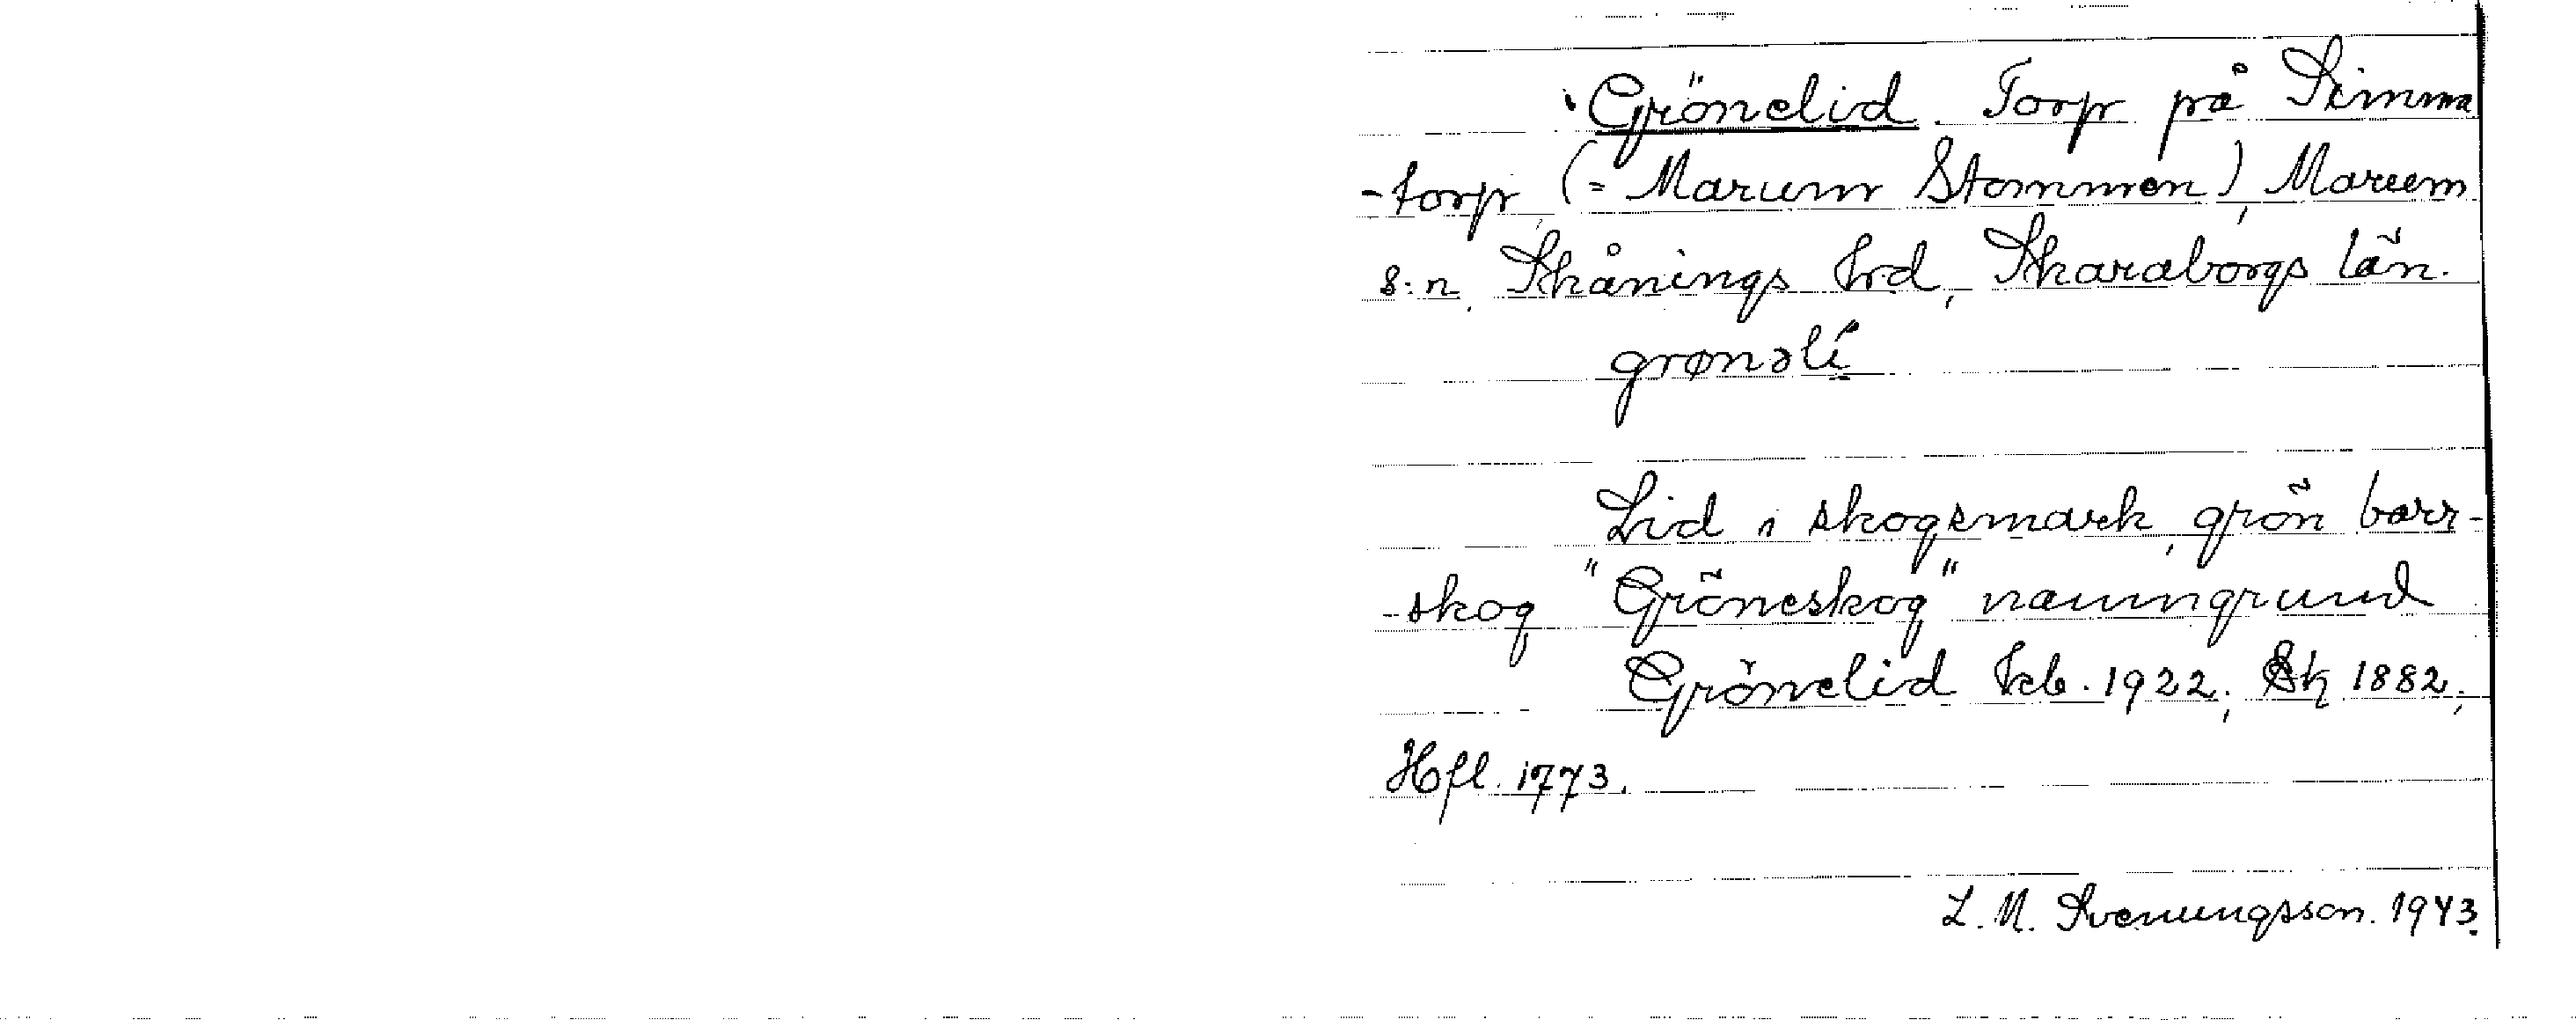 Grönelid. Torp på Simma
-torp (= Marum Stommen), Marum
s:n, Skånings hrd, Skaraborgs län.
grønəlí
Lid i skogsmark, grön barr-
-skog "Gröneskog" namngrund
Grönelid Kcb. 1922; Sk 1882;
Hfl. 1773.
L. M. Svenungsson. 1943.